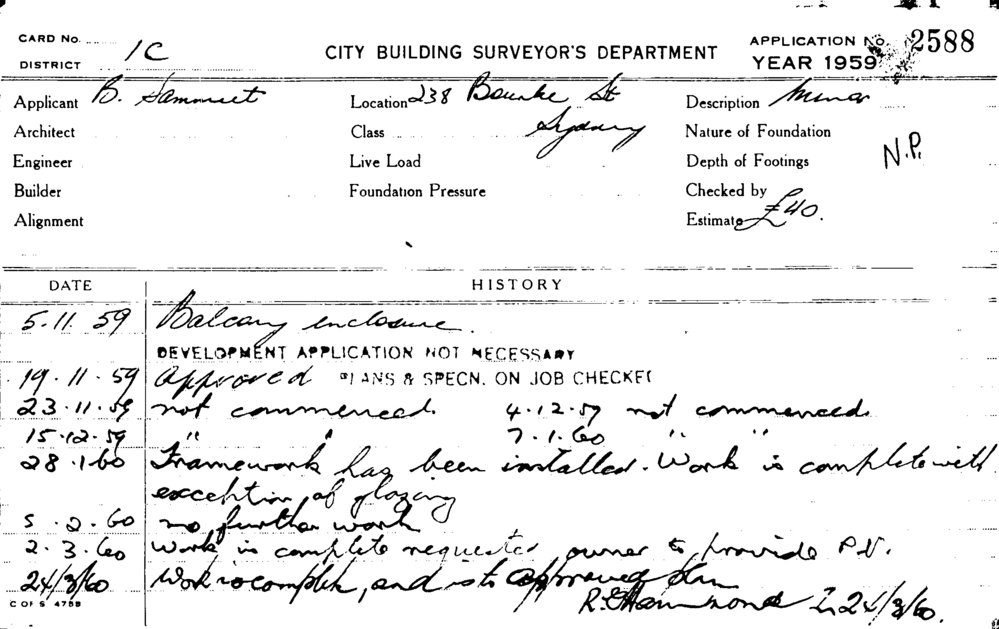 CARD No.
DISTRICT 1C
CITY BUILDING SURVEYOR'S DEPARTMENT
APPLICATION No. 2588
YEAR 1959
Applicant B. Sammut Location 238 Bourke St Description Minor
Architect Class Sydney Nature of Foundation
Engineer Live Load Depth of Footings N.P.
Builder Foundation Pressure Checked by
Alignment Estimate £40.
DATE HISTORY
5.11.59 Balcony enclosure.
DEVELOPMENT APPLICATION NOT NECESSARY
19.11.59 Approved PLANS & SPECN. ON JOB CHECKED
23.11.59 not commenced. 4.12.59 not commenced.
15.12.59 " " 7.1.60 " "
28.1.60 Framework has been installed. Work is complete with
exception of glazing
5.2.60 no further work
2.3.60 Work is complete requested owner to provide P.V.
24/3/60 Work is complete, and is to approved plan
R. Hammond 24/3/60.
C OF S 475B